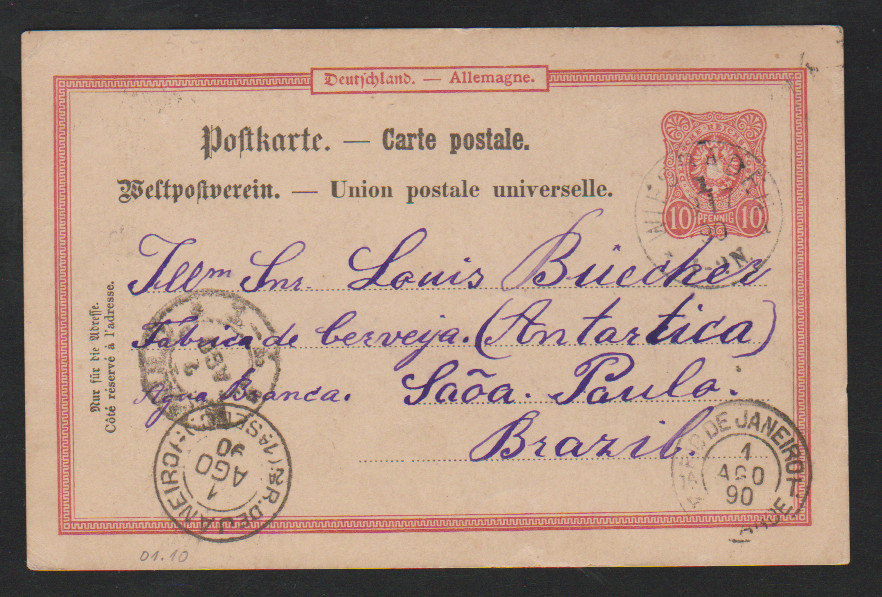 Deutschland. — Allemagne.
Postkarte. — Carte postale.
Weltpostverein. — Union postale universelle.
10 PFENNIG 10
90
Illm Snr. Louis Büecher
Fabrica de Cerveja. (Antartica)
Agua Branca. Saõa. Paulo.
Brazil.
Nur für die Adresse.
Côté réservé à l'adresse.
1
AGO
90
DE JANEIRO
1
AGO
90
01.10